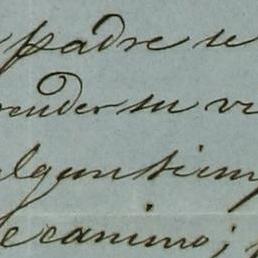 padre se
render su vi
algun tiemp
e camino;